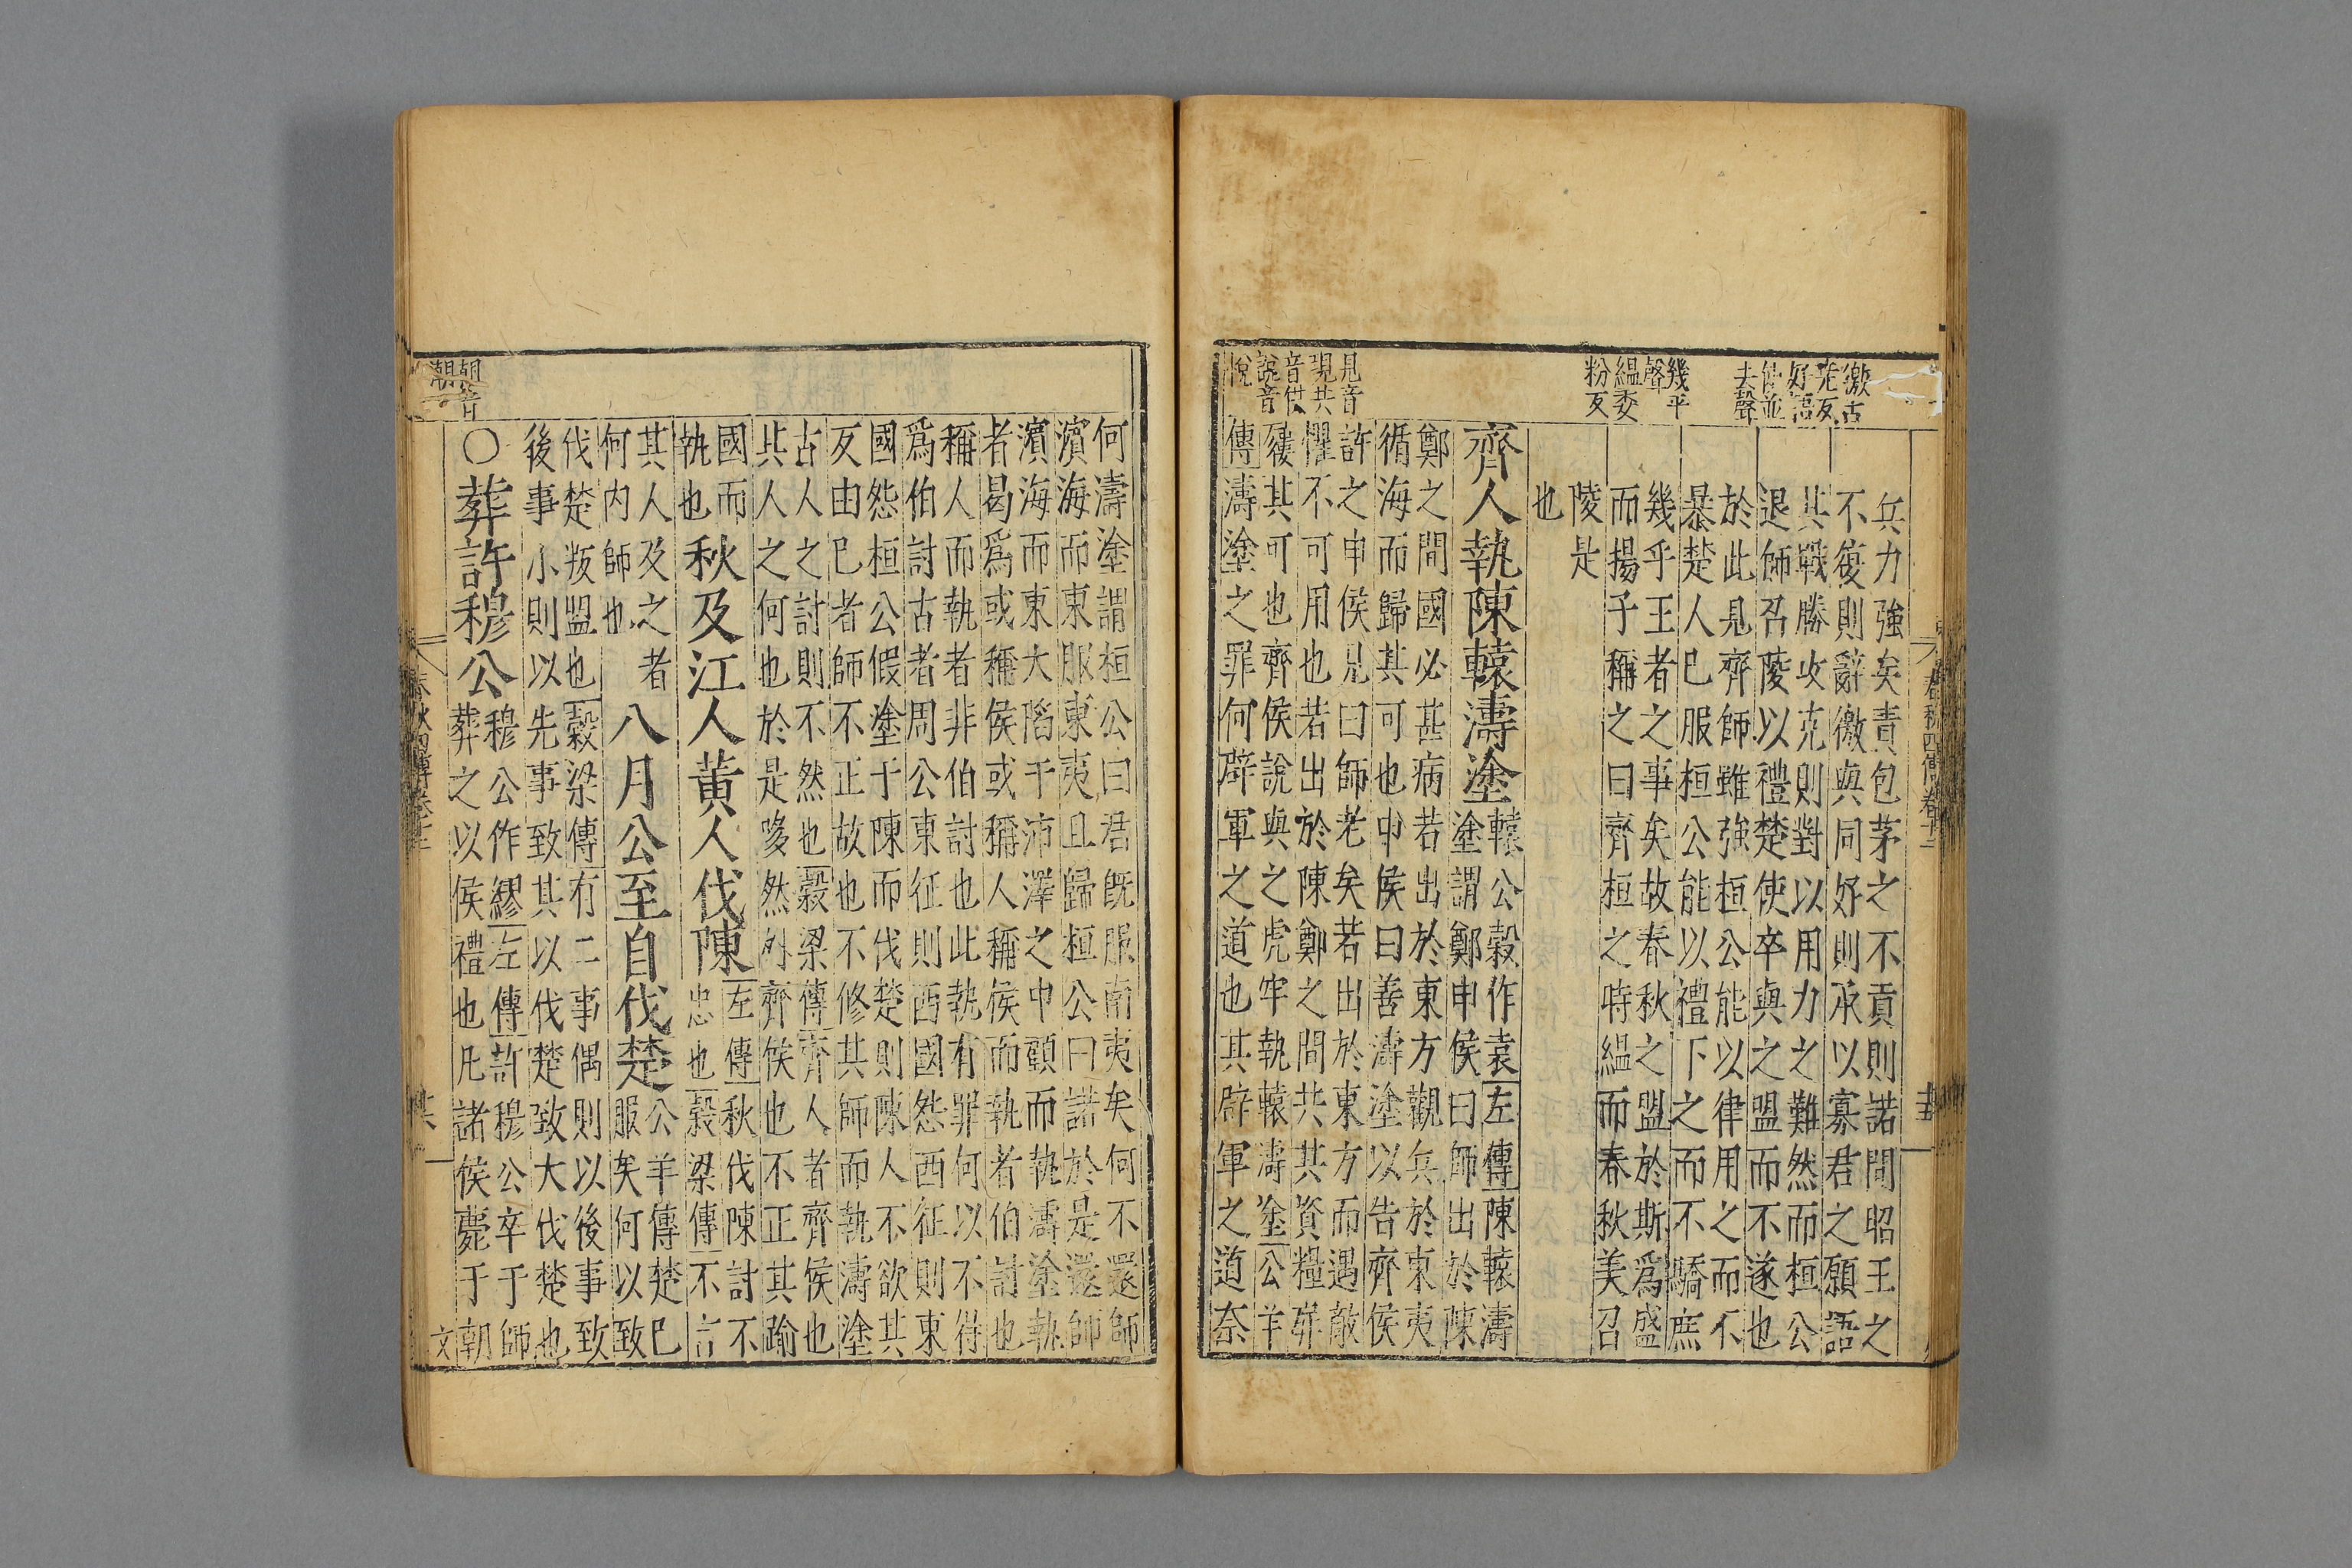 徼古
堯反
好語
並
去聲
幾平
聲
縕委
粉反
兵力強矣責包茅之不貢則諾問昭王之
不復則辭徼與同好則承以寡君之願語
其戰勝攻克則對以用力之難然而桓公
退師召陵以禮楚使卒與之盟而不遂也
於此見齊師雖強桓公能以律用之而不
暴楚人已服桓公能以禮下之而不驕庶
幾乎王者之事矣故春秋之盟於斯爲盛
而揚子稱之曰齊桓之時縕而春秋美召
陵是
也
齊人執陳轅濤塗
轅公穀作袁左傳陳轅濤
塗謂鄭申侯曰師出於陳
鄭之間國必甚病若出於東方觀兵於東夷
循海而歸其可也申侯曰善濤塗以告齊侯
許之申侯見曰師老矣若出於東方而遇敵
懼不可用也若出於陳鄭之間共其資糧屝
屨其可也齊侯說與之虎牢執轅濤塗公羊
傳濤塗之罪何辟軍之道也其辟軍之道奈
見音
現共
音供
說音
悅
春秋四傳卷十二
何濤塗謂桓公曰君旣服南夷矣何不還師
濱海而東服東夷且歸桓公曰諾於是還師
濱海而東大陷于沛澤之中顧而執濤塗執
者曷爲或稱侯或稱人稱侯而執者伯討也
稱人而執者非伯討也此執有罪何以不得
爲伯討古者周公東征則西國怨西征則東
國怨桓公假塗于陳而伐楚則陳人不欲其
反由已者師不正故也不修其師而執濤塗
古人之討則不然也穀梁傳齊人者齊侯也
其人之何也於是哆然外齊侯也不正其踰
國而
執也
秋及江人黃人伐陳
左傳秋伐陳討不
忠也穀梁傳不言
其人及之者
何内師也
八月公至自伐楚
公羊傳楚已
服矣何以致
伐楚叛盟也穀梁傳有二事偶則以後事致
後事小則以先事致其以伐楚致大伐楚也
〇葬許穆公
穆公作繆左傳許穆公卒于師
葬之以侯禮也凡諸侯薨于朝
朝音
潮
春秋四傳卷十二
文